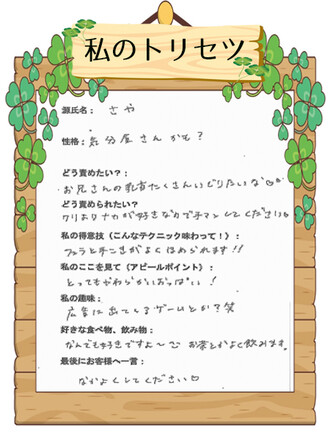 私のトリセツ
源氏名： さや
性格： 気分屋さんかも？
どう責めたい？：
お兄さんの乳首たくさんいじりたいな♡♡
どう責められたい？
クリよりナカが好きなので手マンしてください♡
私の得意技（こんなテクニック味わって！）：
フェラと手コキがよくほめられます!!
私のここを見て（アピールポイント）：
とってもやわらかいおっぱい！
私の趣味：
広告に出てくるゲームとか？笑
好きな食べ物、飲み物：
なんでも好きですよ～ お茶とかよく飲みます。
最後にお客様へ一言：
なかよくしてください♡